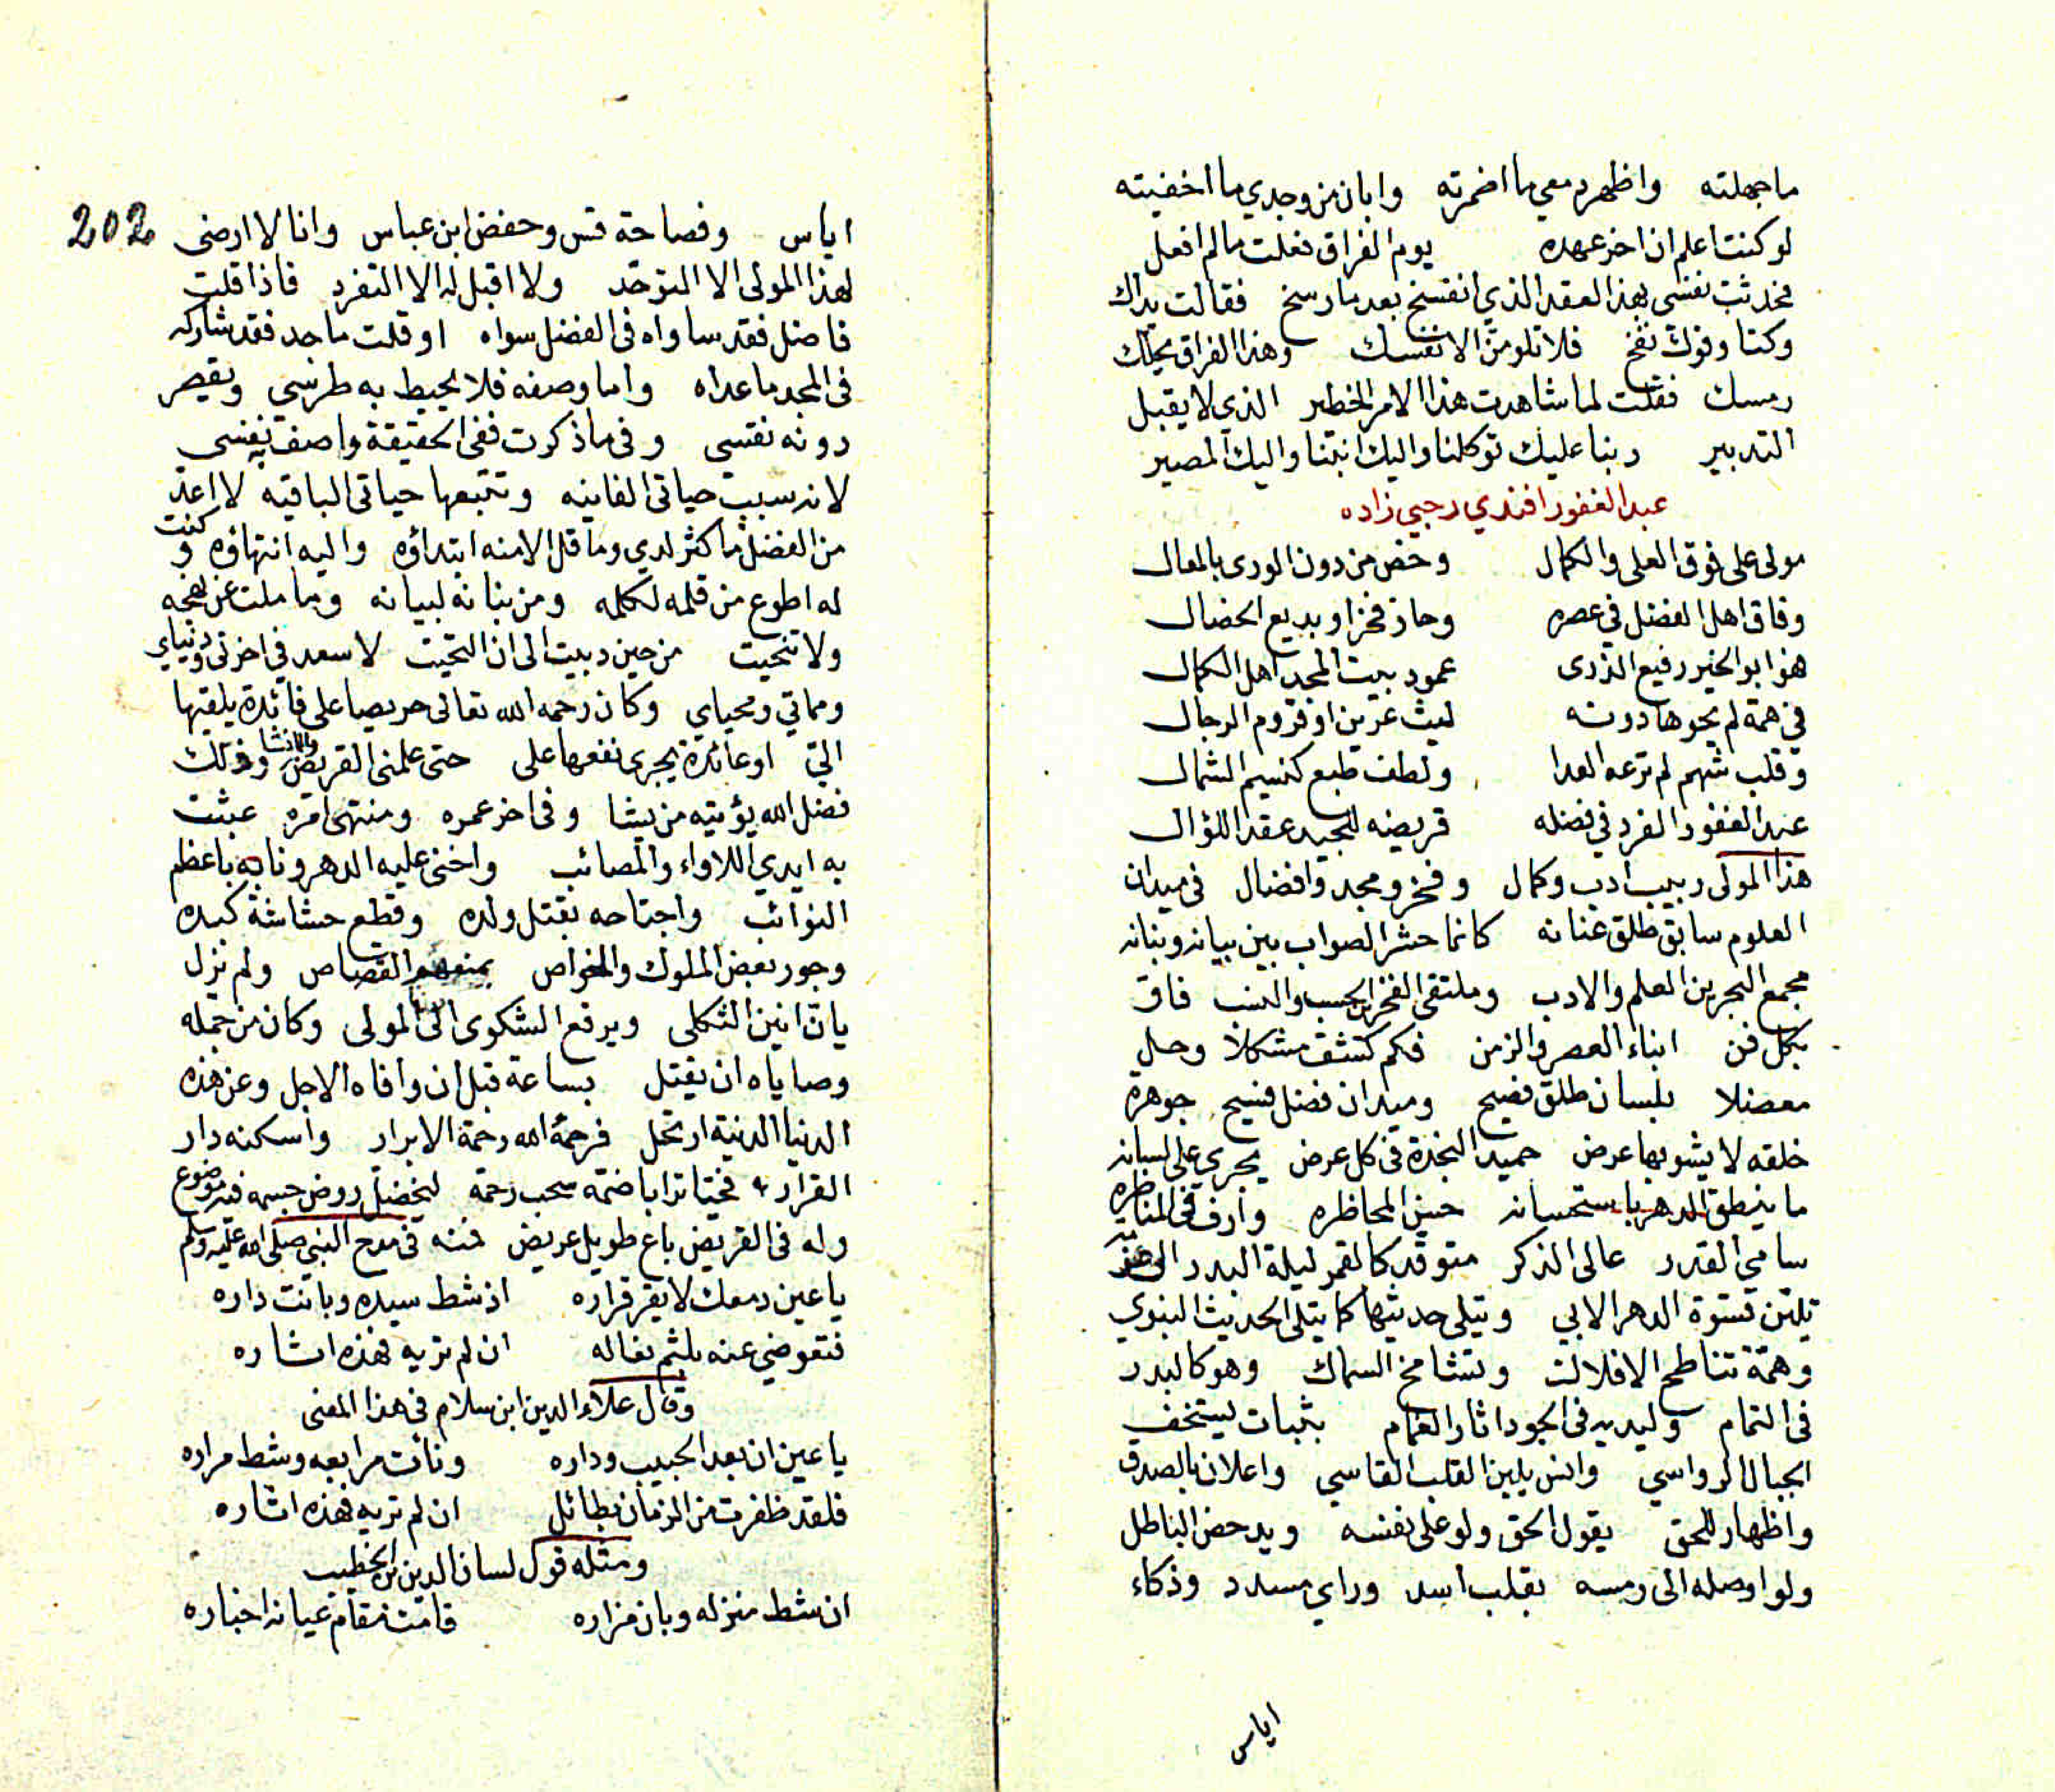 ماجهلته واظهر دمعي ما اضمرته وابان من وجدي ما اخفيته
لو كنت اعلم ان اخر عهده يوم الفراق فعلت ما لم افعل
فحدثت نفسي بهذا العقد الذي انفسخ بعد ما رسخ فقالت يداك
وكتا وفوك نفخ فلا تلومن الا نفسك وهذا الفراق يحلك
رمسك فقلت لما شاهدت هذا الامر الخطير الذي لا يقبل
التدبير ربنا عليك توكلنا واليك انبنا واليك المصير
عبد الغفور افندي رحبي زاده
مولى على فوق العلى والكمال وخص من دون الورى بالمعال
وفاق اهل الفضل في عصره وحاز فخزا وبديع الخصال
هو ابو الخير رفيع الذرى عمود بيت المجد اهل الكمال
في همة لم يحوها دونه ليث عرين او قروم الرجال
وقلب شهم لم ترعه العدا ولطف طبع كنسيم الشمال
عبد الغفور المفرد في فضله قريضه للجيد عقد اللؤال
هذا المولى ربيب ادب وكمال وفخر ومجد وافضال في ميدان
العلوم سابق طلق عنانه كانما حشر الصواب بين بيانه وبنانه
مجمع البحرين العلم والادب وملتقى الفخرين الحسب والنسب فاق
بكل فن ابناء العصر والزمن فكم كشف مشكلا وحل
معضلا بلسان طلق فصيح وميدان فضل فسيح جوهرة
خلقه لا يشوبها عرض حميد النجدة في كل عرض يجري على لسانه
ما ينطق الدهر باستحسانه حسن المحاظره وارف في المناظره
سامي القدر عالي الذكر متوقد كالقمر ليلة البدر
تلين قسوة الدهر الابي وتبلى حديثها كما يتلى الحديث النبوي
وهمة تناطح الافلاك وتشامخ السماك وهو كالبدر
في التمام وليديه في الجود اثار الغمام بثبات يستخف
الجبال الرواسي وانس يلين القلب القاسي واعلان بالصدق
واظهار للحق يقول الحق ولو على نفسه ويدحض الباطل
ولو اوصله الى رمسه بقلب اسد وراي مسدد وذكاء
اياس
202
اياس وفصاحة قس وحفظ ابن عباس وانا لا ارضى
لهذا المولى الا التوحد ولا اقبل له الا التفرد فاذا قلت
فاضل فقد ساواه في الفضل سواه او قلت ماجد فقد شاركه
في المجد ما عداه واما وصفه فلا يحيط به طرسي ويقصر
دونه نقسي وفي ما ذكرت ففي الحقيقة واصف به نفسي
لانه سبب حياتي الفانيه وتتبعها حياتي الباقيه لا اعد
من الفضل ما كثر لدي وما قل الا منه ابتداؤه واليه انتهاؤه وكنت
له اطوع من قلمه لكلمه ومن بنانه لبيانه وما ملت عن نهجه
ولا تنحيت من حين دبيت الى ان التحيت لاسعد في اخرتي ودنياي
ومماتي ومحياي وكان رحمه الله تعالى حريصا على فائدة يلقيها
الي او عائدة يجري نفعها علي حتى علمني القريض والانشا وذلك
فضل الله يؤتيه من يشا وفي اخر عمره ومنتهى امره عبثت
به ايدي اللاواء والمصائب واخنى عليه الدهر ونابه باعظم
النوائب واجتاحه بقتل ولده وقطع حشاشة كبده
وجور بعض الملوك والخواص القصاص ولم يزل
يان انين الثكلى ويرفع الشكوى الى المولى وكان من جمله
وصاياه ان يقتل بساعة قبل ان وافاه الاجل وعن هذه
الدنيا الدنية ارتحل فرحمه الله رحمة الابرار واسكنه دار
القرار فحيا ترابا ضمه سحب رحمة لتخضل روض جسمه فيه موضوع
وله في القريض باع طويل عريض فمنه في مدح النبي صلى الله عليه وسلم
يا عين دمعك لا يقر قراره اذ شط سيده وبانت داره
فتعوضي عنه بلثم نعاله ان لم تريه فهذه اثاره
وقال علاء الدين ابن سلام في هذا المعنى
يا عين ان بعد الحبيب وداره ونات مرابعه وشط مزاره
فلقد ظفرت من الزمان بطائل ان لم تريه فهذه اثاره
ومثله قول لسان الدين بن الخطيب
ان شط منزله وبان مزاره قامت مقام عيانه اخباره